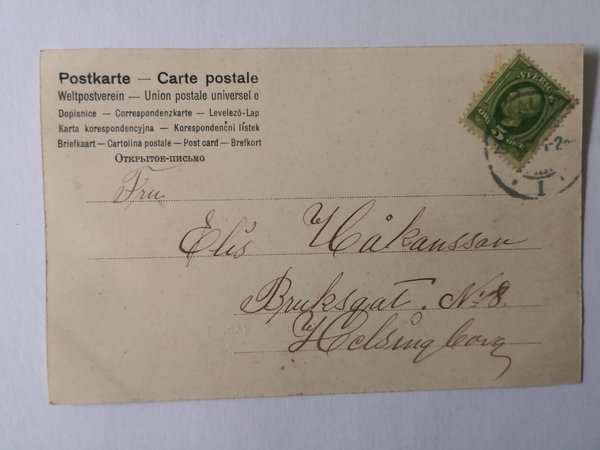 Postkarte — Carte postale
Weltpostverein — Union postale universel.e
Dopisnice — Correspondenzkarte — Levelező-Lap
Karta korespondencyjna — Korespondenční lístek
Briefkaart — Cartolina postale — Post card — Brefkort
Открытое-письмо
SVERIGE
5
ÖRE
1
Fru
Elis Håkansson
Bruksgat. No 8.
Helsingborg